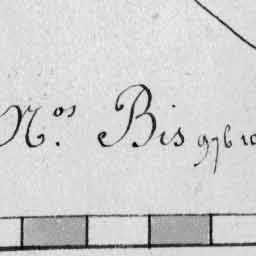 Nos. Bis 976 10